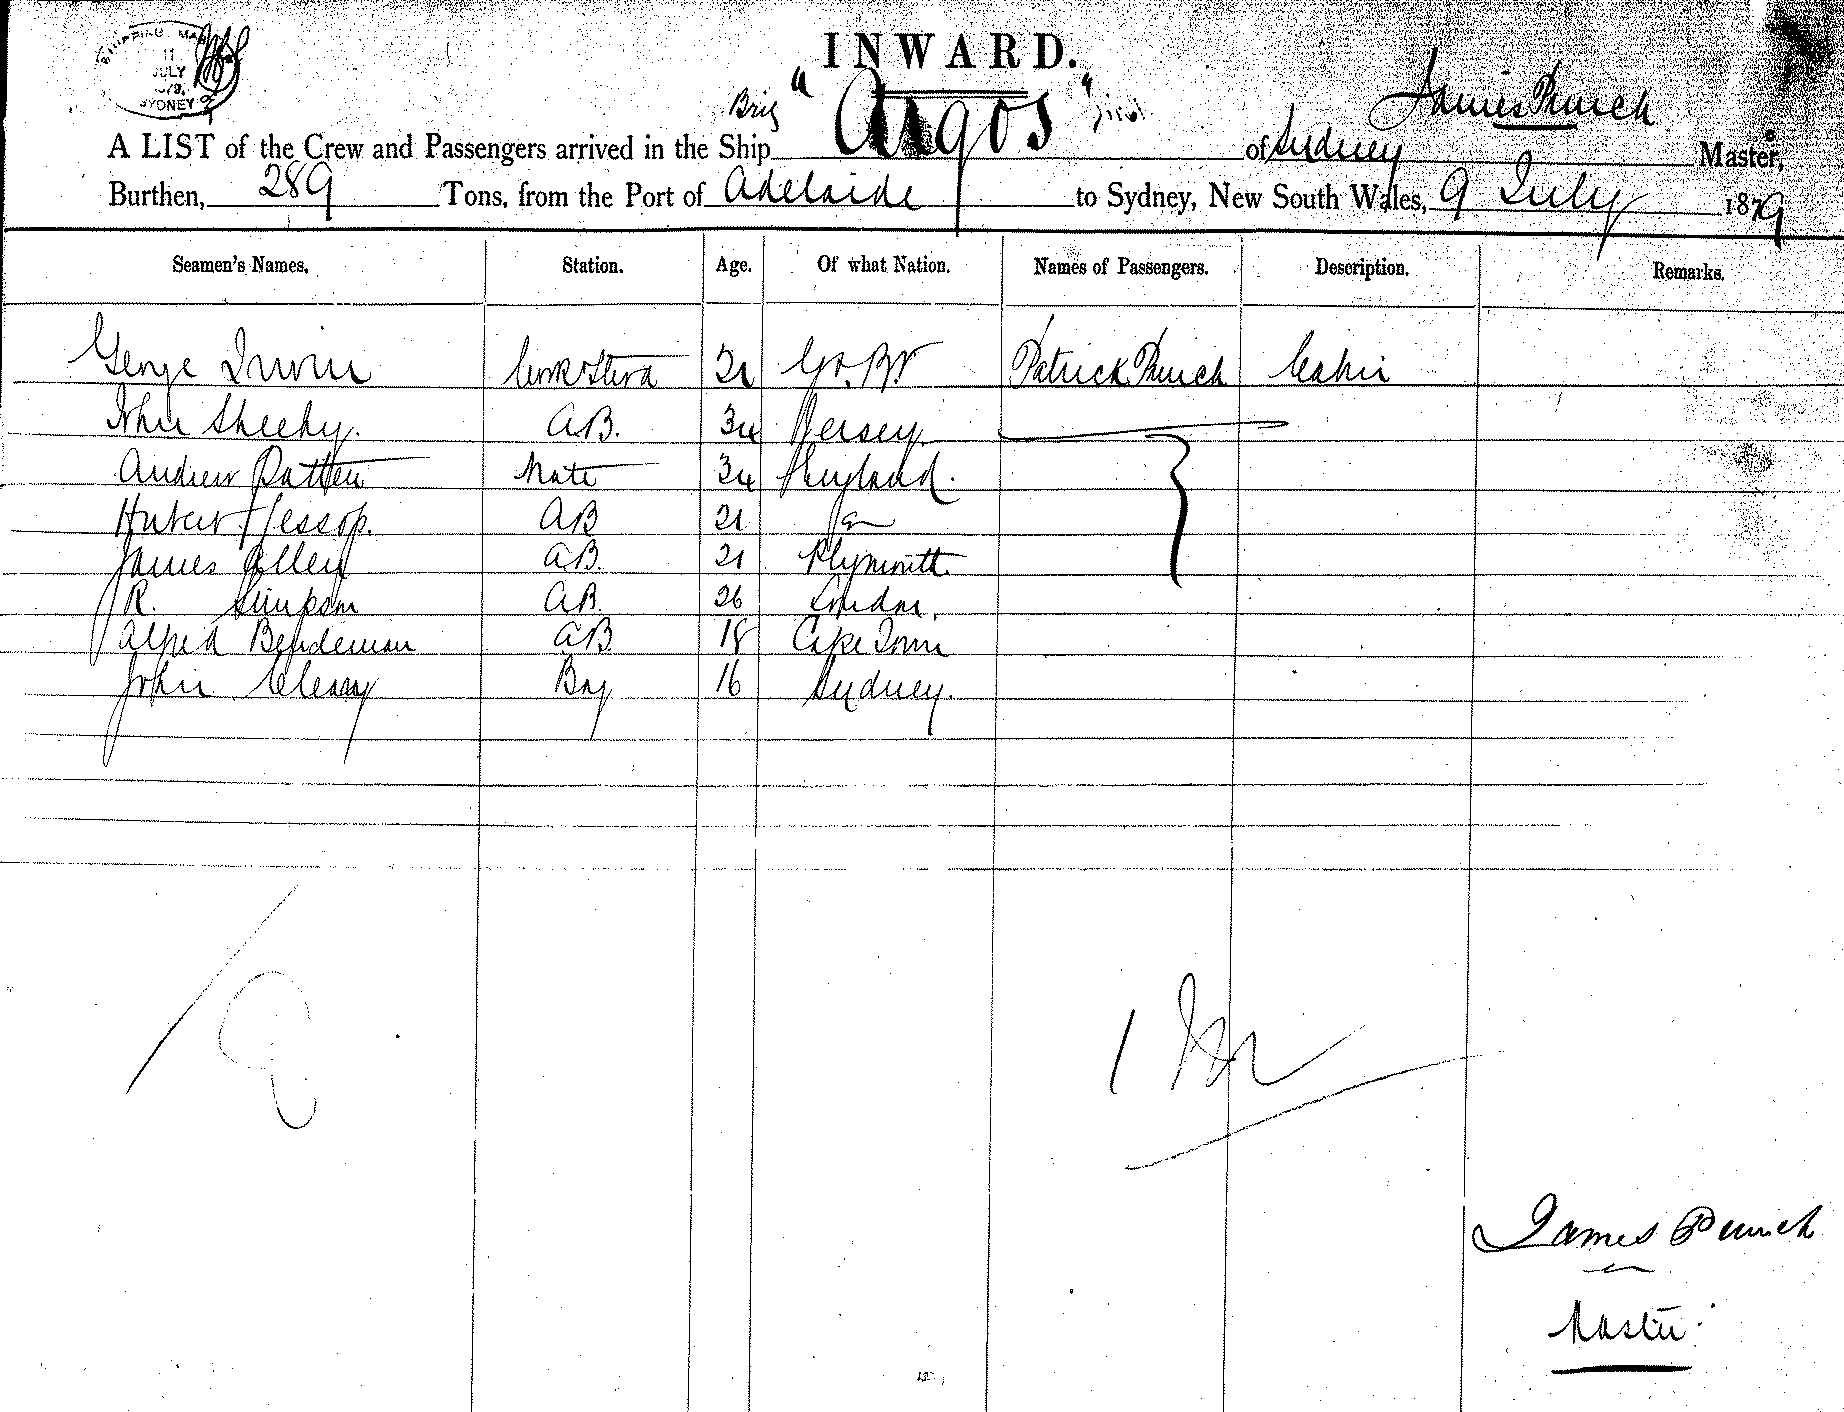 SHIPPING MA
11
JULY
SYDNEY
INWARD.
James Punch
Brig "Argos"
A LIST of the Crew and Passengers arrived in the Ship of Sydney Master,
Burthen, 289 Tons, from the Port of Adelaide to Sydney, New South Wales, 9 July 1879
Seamen's Names. Station. Age. Of what Nation. Names of Passengers. Description. Remarks.
George Irwin Cook & Stwd 21 Gt. Bt. Patrick Punch Cabin
John Sheehy. A.B. 34 Jersey.
Andrew Patten Mate 34 England.
Hubert Jessop. AB 21
James Allen A.B. 21 Plymouth
R. Simpson A.B. 26 London.
Alfred Bendeman A.B. 18 Cape Town
John Cleary Boy 16 Sydney.
1
James Punch
Master